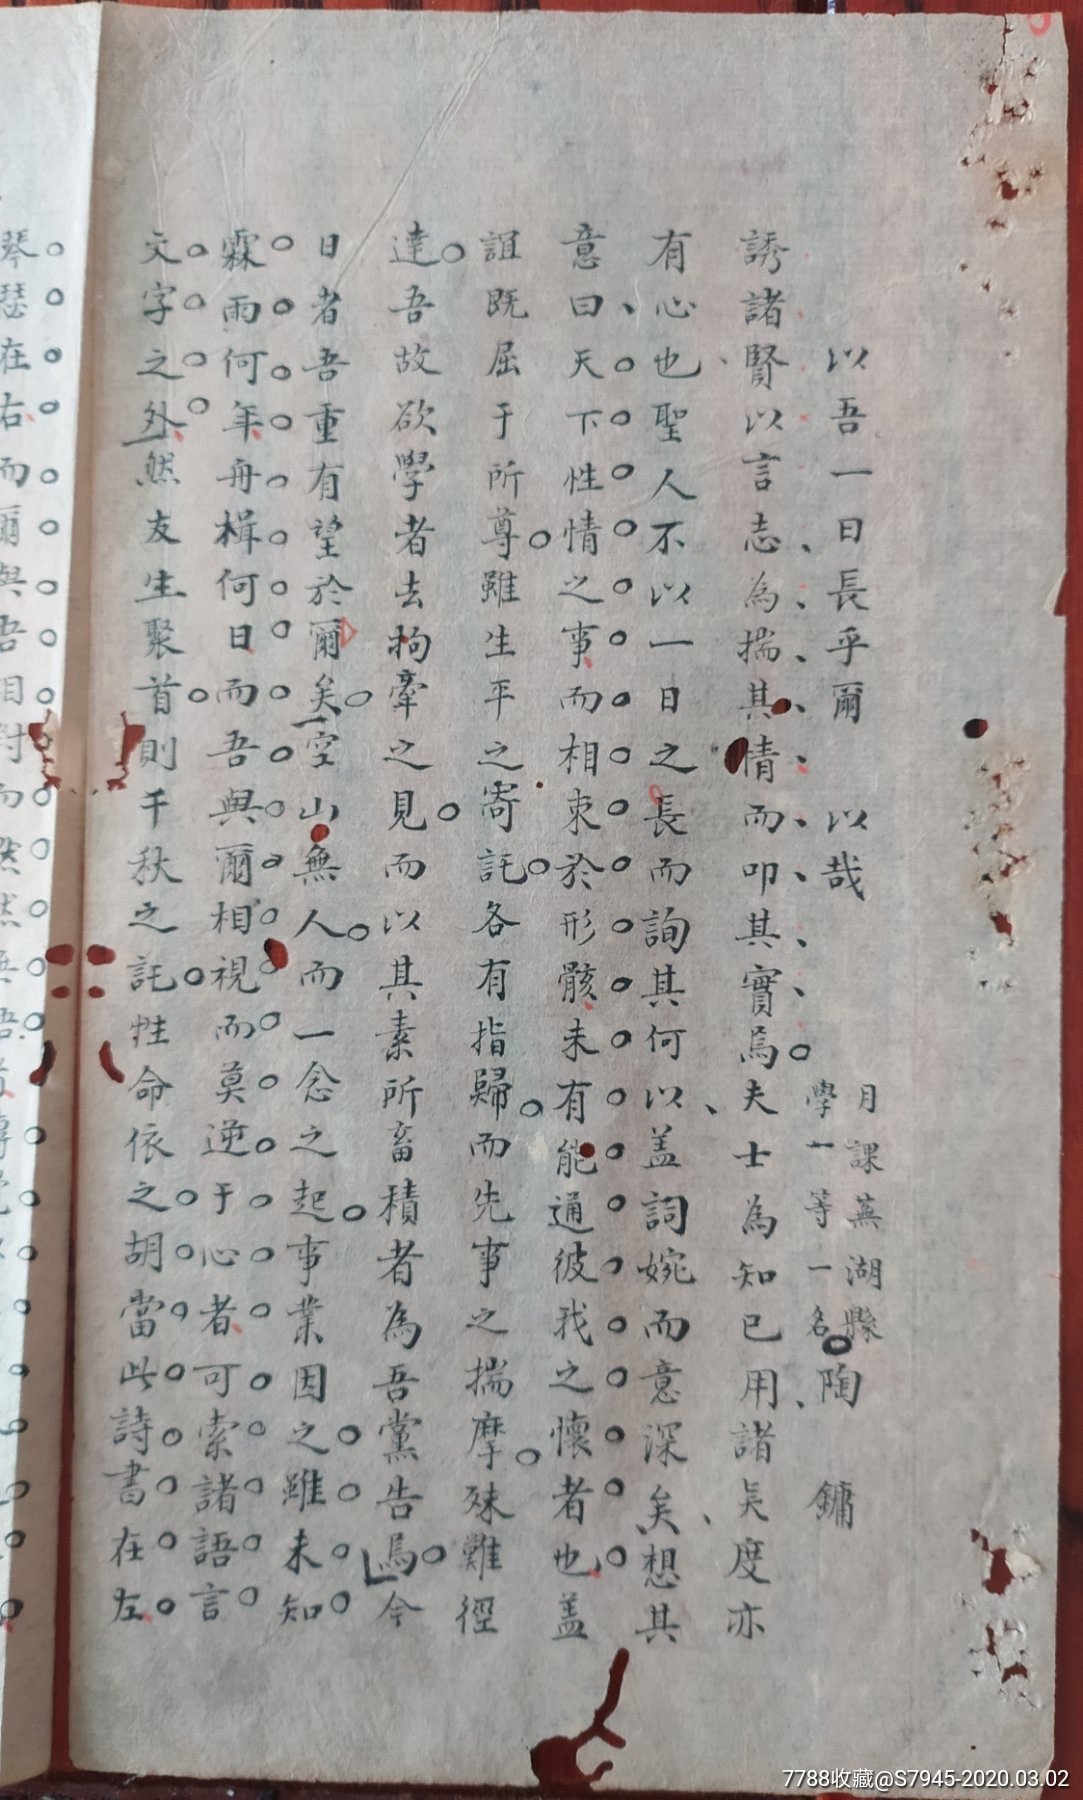 以吾一日長乎爾　以哉
月課蕪湖縣
學一等一名
陶　鏞
誘諸賢以言志為揣其情而叩其實焉夫士為知已用諸矣度亦
有心也聖人不以一日之長而詢其何以盖詞婉而意深矣想其
意曰天下性情之事而相束於形骸未有能通彼我之懷者也盖
誼既屈于所尊雖生平之寄託各有指歸而先事之揣摩殊難徑
達吾故欲學者去拘牽之見而以其素所畜積者為吾黨告焉今
日者吾重有望於爾矣空山無人而一念之起事業因之雖未知
霖雨何年舟楫何日而吾與爾相視而莫逆于心者可索諸語言
文字之外然友生聚首則千秋之託性命依之胡當此詩書在左
琴瑟在右而爾與吾相對而
7788收藏@S7945-2020.03.02